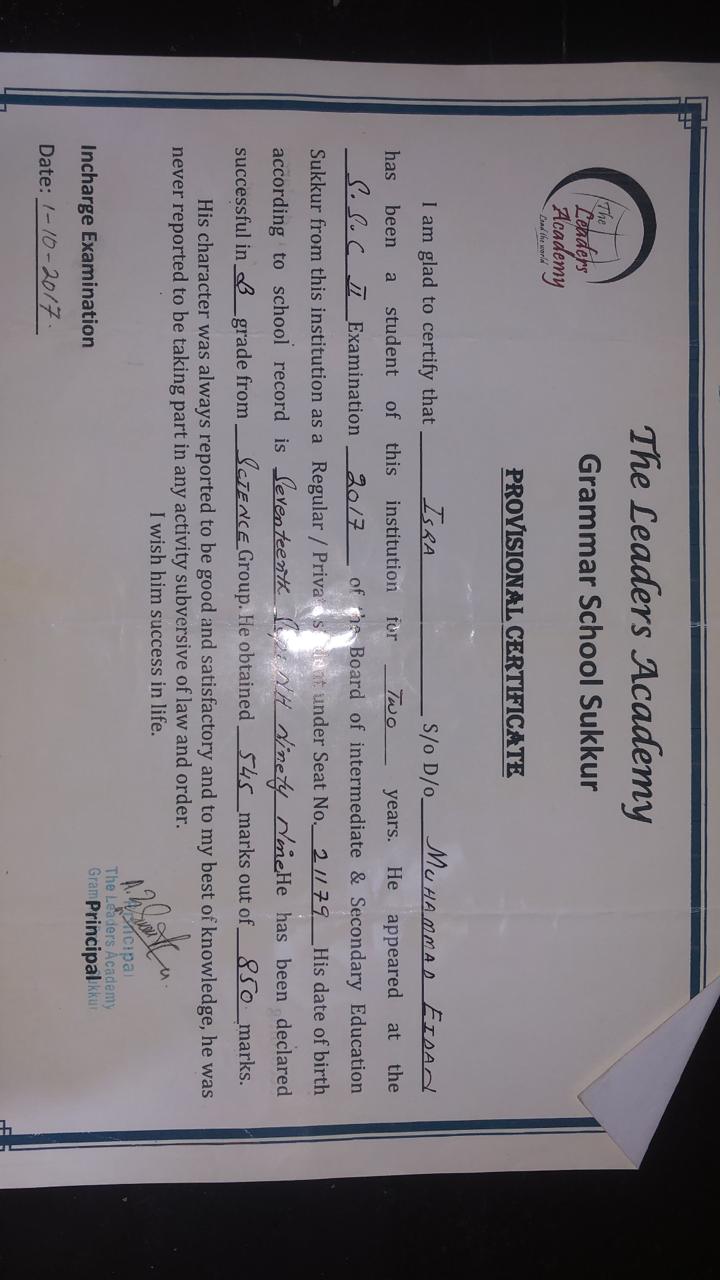 The
Leaders
Academy
Lead the world
The Leaders Academy
Grammar School Sukkur
PROVISIONAL CERTIFICATE
I am glad to certify that ISRA S/o D/o MUHAMMAD
has been a student of this institution for Two years. He appeared at the
S.S.C II Examination 2017 of the Board of intermediate & Secondary Education
Sukkur from this institution as a Regular / Private student under Seat No. 21179 His date of birth
according to school record is Seventeenth Ninety Nine He has been declared
successful in B grade from SCIENCE Group. He obtained 545 marks out of 850 marks.
His character was always reported to be good and satisfactory and to my best of knowledge, he was
never reported to be taking part in any activity subversive of law and order.
I wish him success in life.
Incharge Examination
Date: 1-10-2017.
Principal
The Leaders Academy
Principal